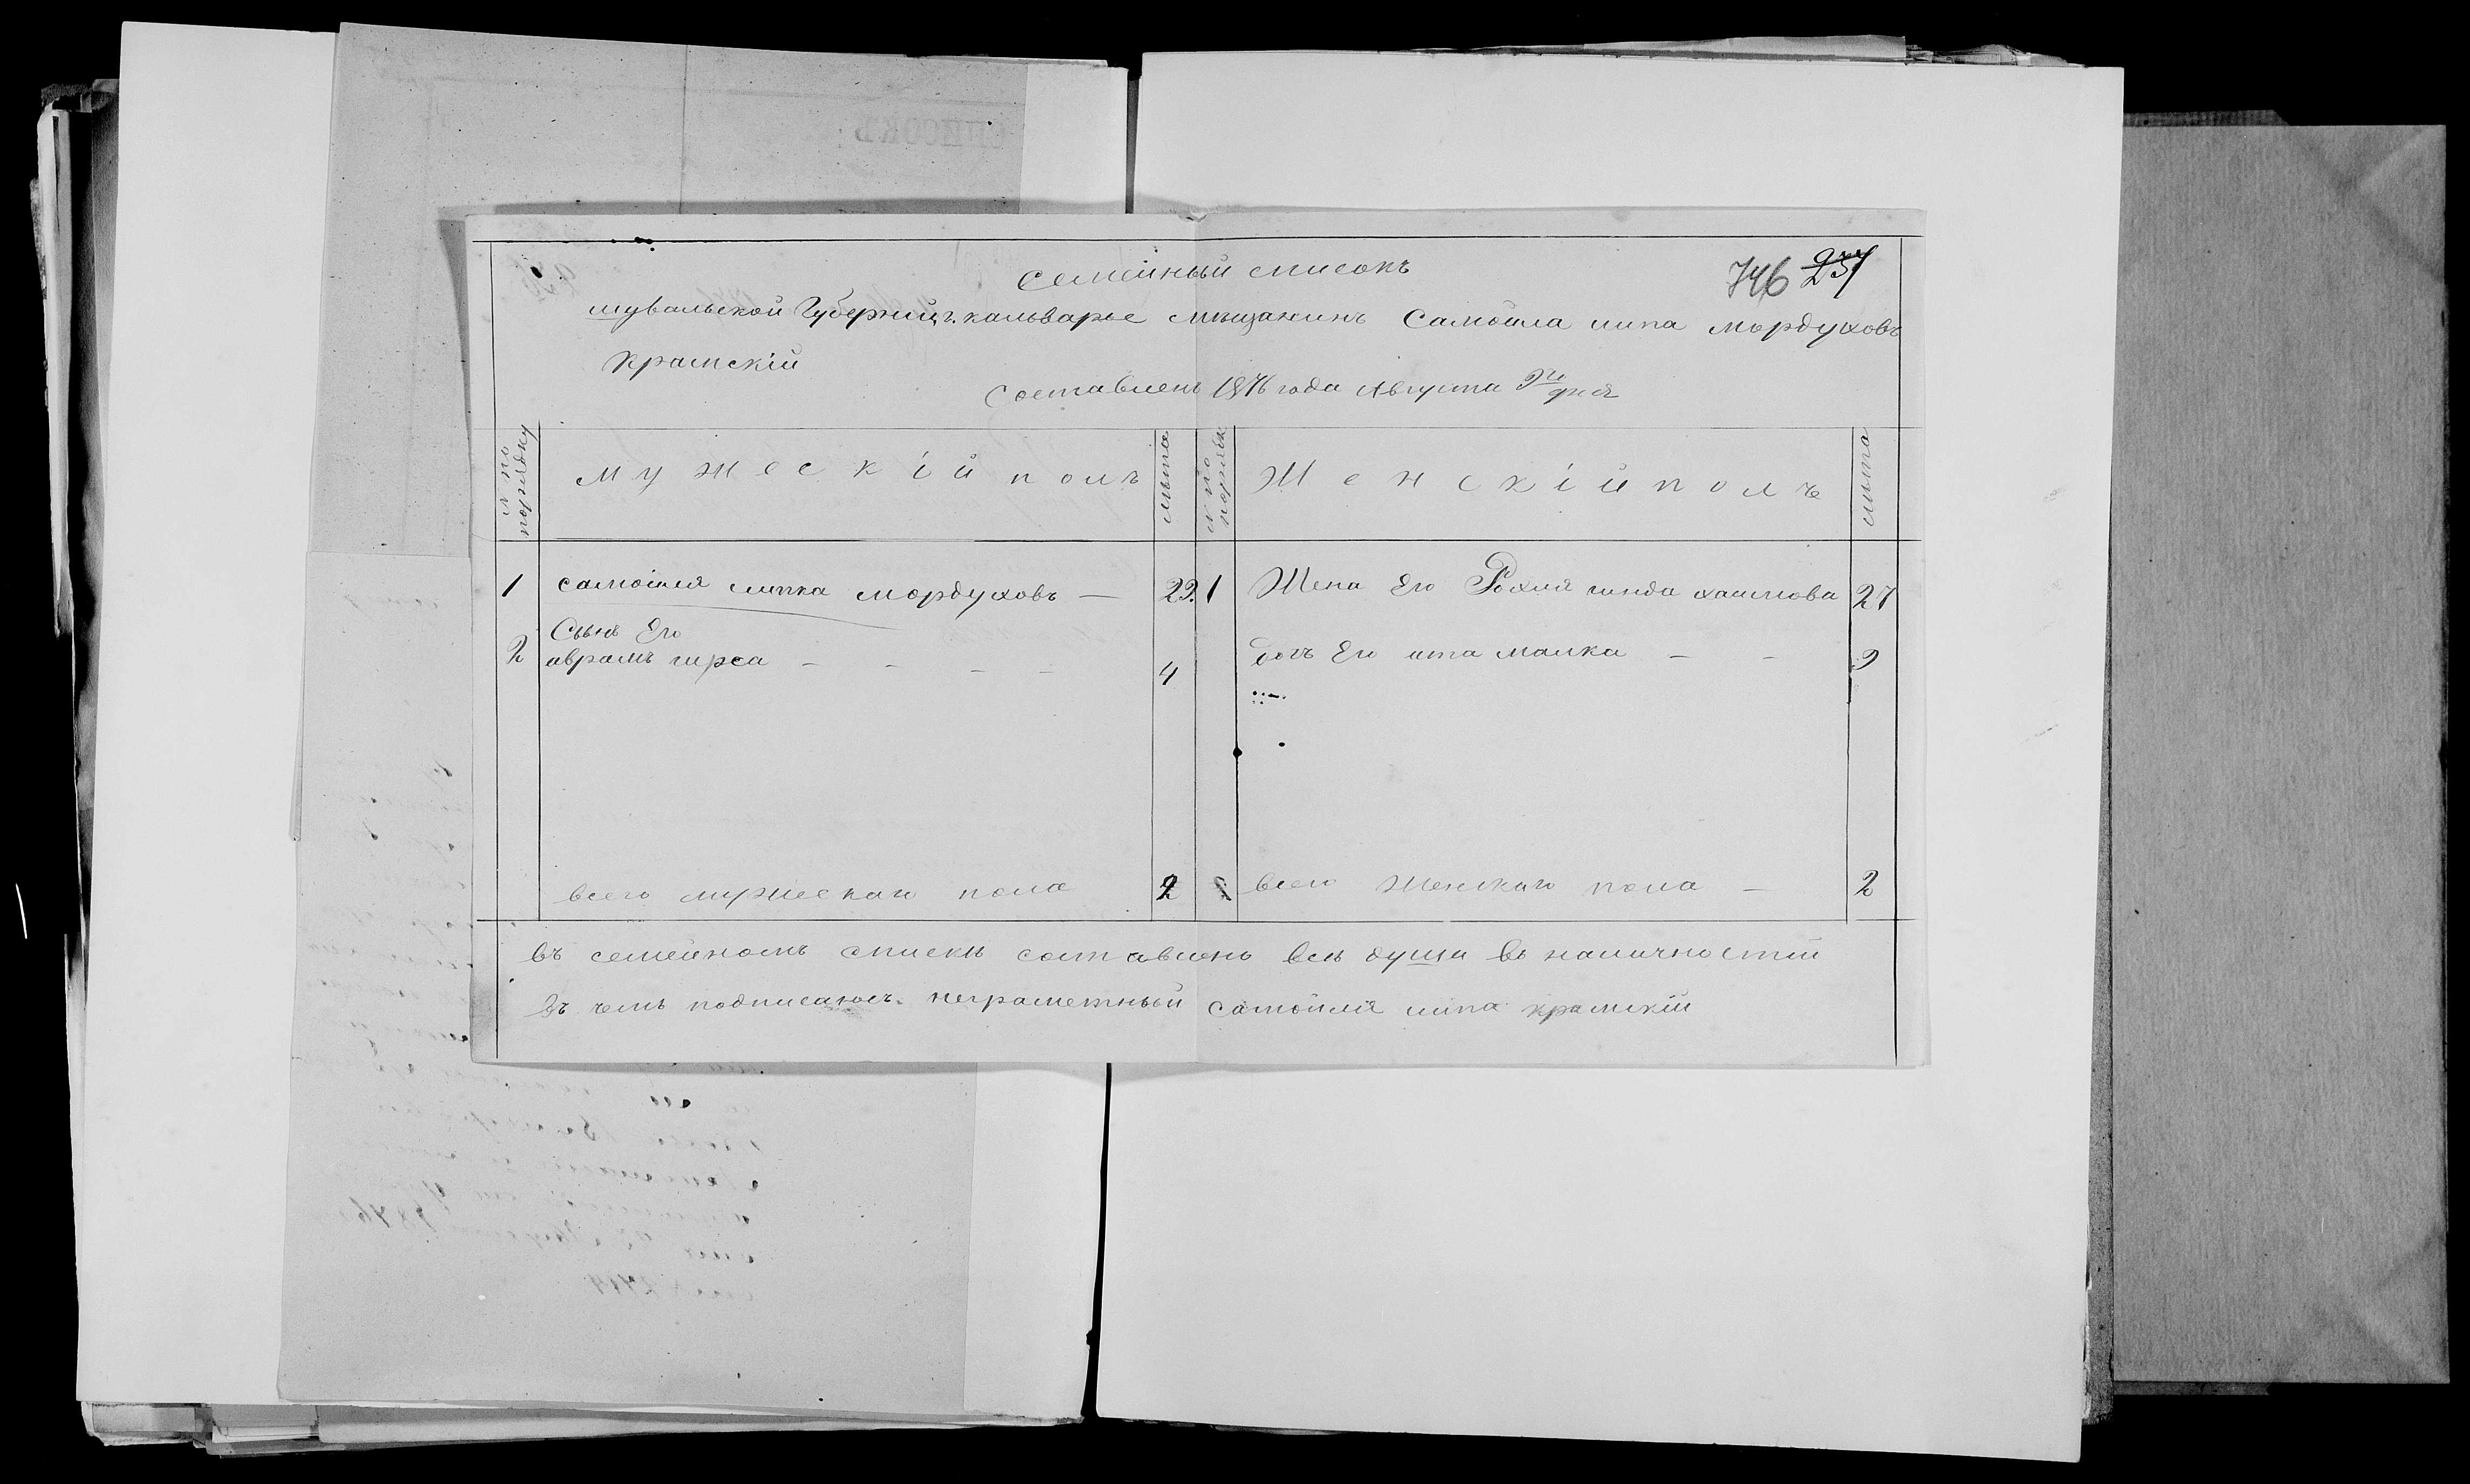 Семейный списокъ
746 237
шувальской Губерниц г. кальварье мѣщанинъ Самойла липа Мордуховъ
Крамскій
Составленъ 1876 года Августа 9го дня
№ по порядку
мужескій полъ
лѣта
№ по порядк
Женскій полъ
лѣта
1 самойля липка мордуховъ — 29. 1 Жена Его Рохля гинда хаимова 27
Сынъ Его
2 аврамъ гирса — — — — 4 дочъ Его ита малка — — 9
всего мужескаго пола 2 2 всего Женскаго пола — 2
въ семейномъ списки составлено всѣ души въ наличностїи
въ чемъ подписаюсъ. неграметный самойля липа крамскій